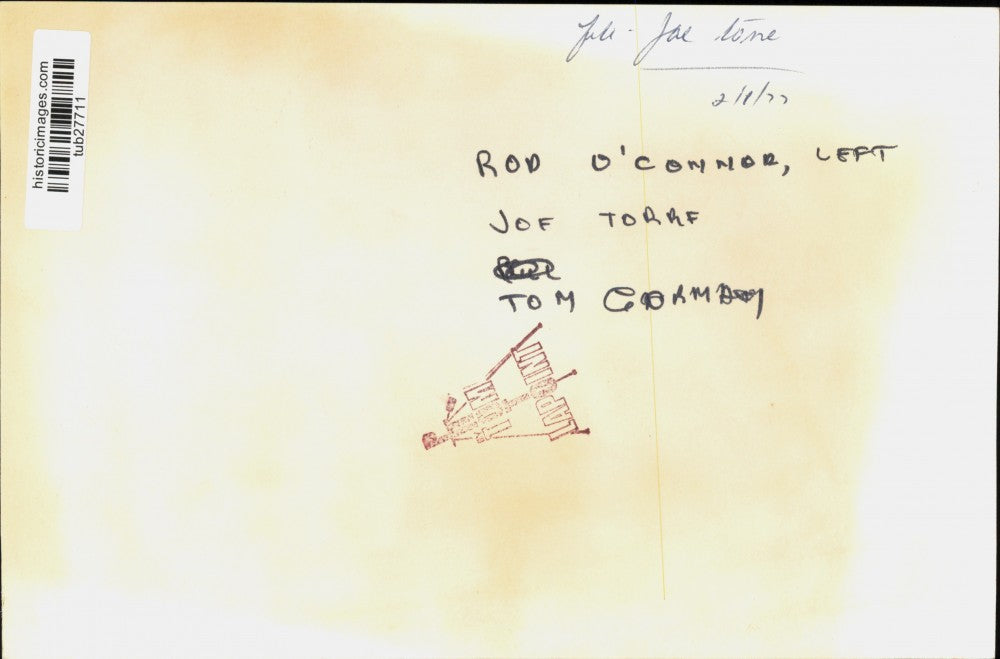 historicimages.com
tub27711
Joe Torre
2/8/77
ROD O'CONNOR, LEFT
JOE TORRE
TOM GORMAN
LAPOINT